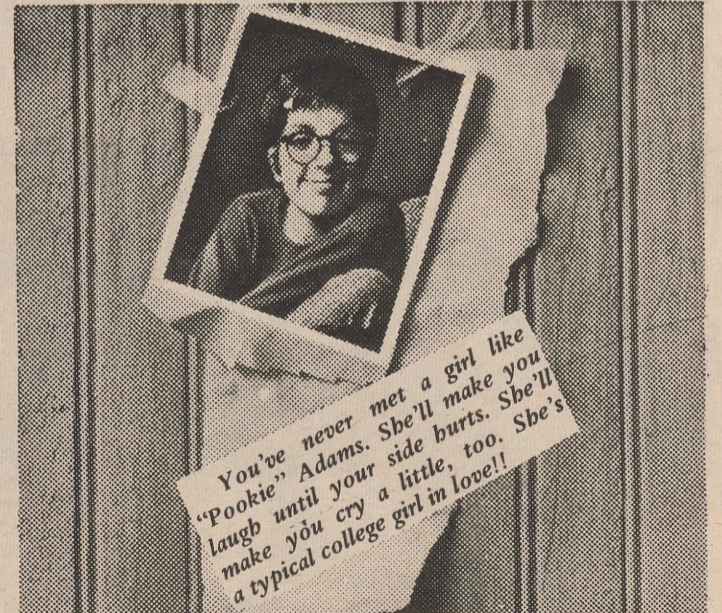 You've never met a girl like
"Pookie" Adams. She'll make you
laugh until your side hurts. She'll
make you cry a little, too. She's
a typical college girl in love!!